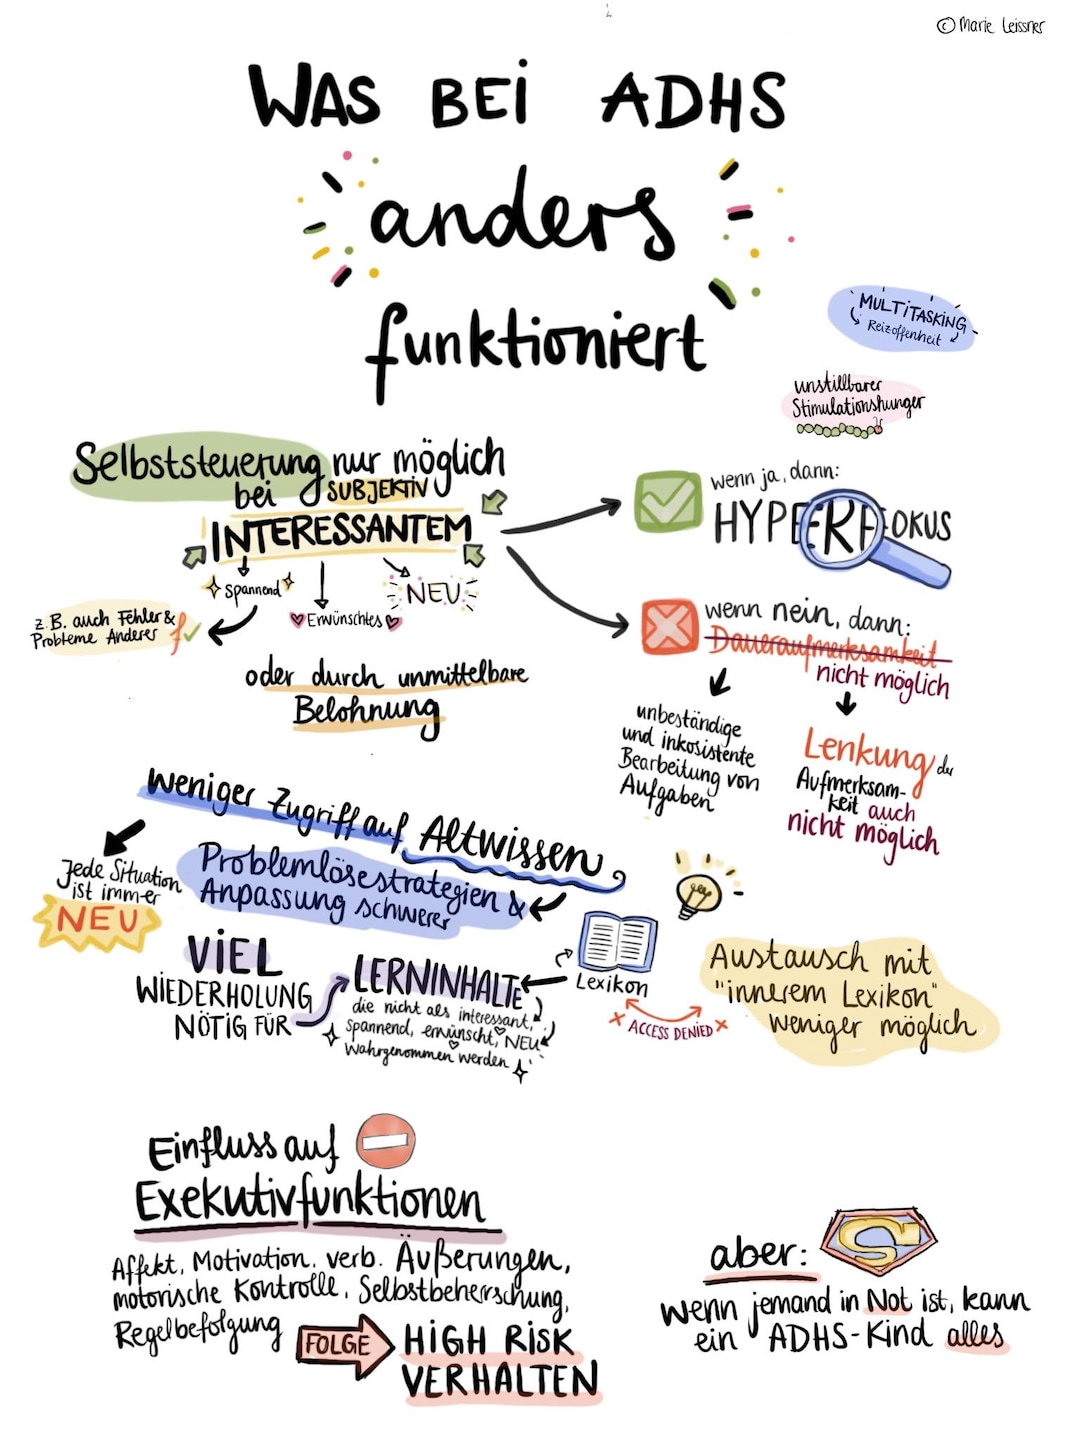 © Marie Leissner
WAS BEI ADHS
anders
funktioniert
MULTITASKING
Reizoffenheit
unstillbarer
Stimulationshunger
Selbststeuerung nur möglich
bei SUBJEKTIV
INTERESSANTEM
spannend
Erwünschtes
NEU
z.B. auch Fehler &
Probleme Anderer
oder durch unmittelbare
Belohnung
wenn ja, dann:
HYPERFOKUS
wenn nein, dann:
Daueraufmerksamkeit
nicht möglich
unbeständige
und inkosistente
Bearbeitung von
Aufgaben
Lenkung der
Aufmerksam-
keit auch
nicht möglich
weniger Zugriff auf Altwissen
Jede Situation
ist immer
NEU
Problemlösestrategien &
Anpassung schwerer
VIEL
WIEDERHOLUNG
NÖTIG FÜR
LERNINHALTE
die nicht als interessant,
spannend, erwünscht, NEU
wahrgenommen werden
Lexikon
ACCESS DENIED
Austausch mit
"innerem Lexikon"
weniger möglich
Einfluss auf
Exekutivfunktionen
Affekt, Motivation, verb. Äußerungen,
motorische Kontrolle, Selbstbeherrschung,
Regelbefolgung
FOLGE
HIGH RISK
VERHALTEN
aber:
S
wenn jemand in Not ist, kann
ein ADHS-Kind alles